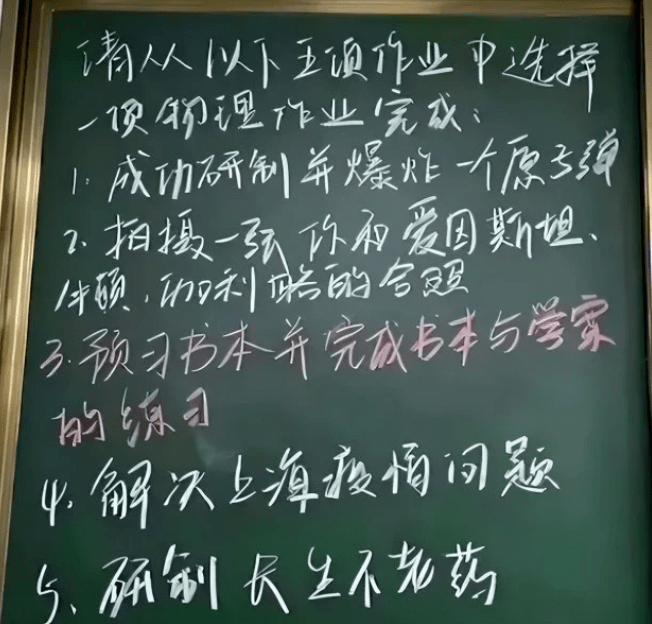 请从以下五项作业中选择
一项物理作业完成：
1. 成功研制并爆炸一个原子弹
2. 拍摄一张你和爱因斯坦、
牛顿、伽利略的合照
3. 预习书本并完成书本与学案
的练习
4. 解决上海疫情问题
5、研制长生不老药